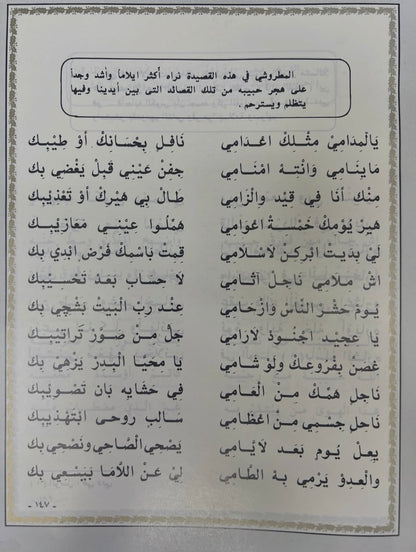 المطروشي في هذه القصيدة نراه أكثر ايلاماً وأشد وجداً
على هجر حبيبه من تلك القصائد التى بين أيدينا وفيها
يتظلم ويسترحم .
يَالْمدَامِيْ مثْلكْ اعْدَامِي نَافلٍ بحْسَانكْ أوْ طِيْبِك
مَا يِنَامِي وَانْتهْ امْنَامِي جفْنْ عيْني قبلْ يَغْضي بك
منْك أنَا فِي قيْد وِالْزَامِي طَالْ بي هيْركْ أوْ تَعْذيْبك
هيرْ يُوْمِكْ خَمْسةْ اعْوَامِي همْلُوا عيْني مَعَازيْبك
لِيْ بدَيتْ ابْركنْ لاسْلامِي قمتْ باسْمكْ فَرْضْ ابْدي بك
اشْ ملامِي نَاجلْ آثَامِي لا حسَاب بَعدْ تَحْسيْبك
يُومْ حشْر النَّاسْ وازْحَامِي عِنْد ربْ الْبَيْتْ بشْچِي بك
يَا عجيد اجْنُودْ لارَامِي جَلْ منْ صوَّرْ تَراتيْبك
غصْنْ بفْرُوعكْ ولوْ شَامِي يَا محيَّا الْبَدرْ يَزْهي بك
نَاجلٍ همَّكْ منْ الْعَامِي في حشَايهْ بان تصْويْبك
نَاحلٍ جسْمي منْ اعْظَامِي سَالبٍ روحى ابْتَهْذيبك
يعلْ يُوم بَعد لاَيَّامِي يَضْحِي الضَّاحي ونَضْحِي بك
والْعدوْ يَرْمِي بهْ الطَّامِي لِيْ عنْ اللامَا بَيَسْعِي بك
- ١٤٧ -